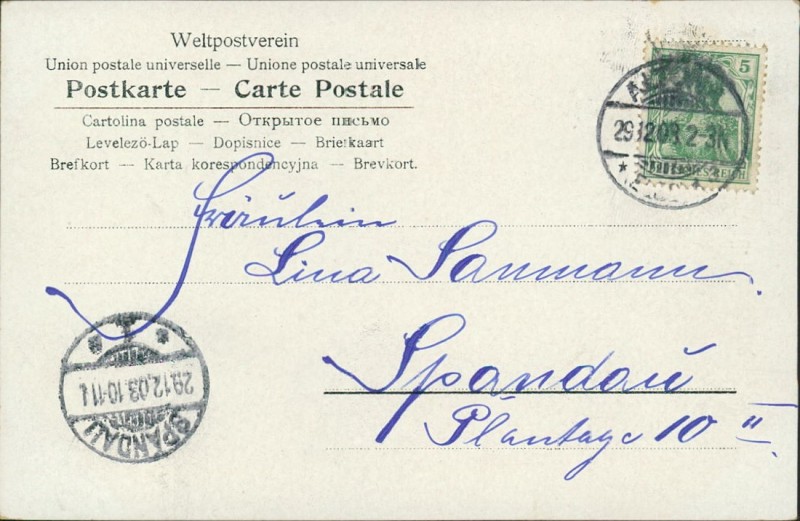 Weltpostverein
Union postale universelle — Unione postale universale
Postkarte — Carte Postale
Cartolina postale — Открытое письмо
Levelező-Lap — Dopisnice — Briefkaart
Brefkort — Karta korespondencyjna — Brevkort.
5
29.12.03. 2-3N
REICH
Fräulein
Lina Sanmann.
Spandau
Plantage 10 II
1
29.12.03.10-11
SPANDAU